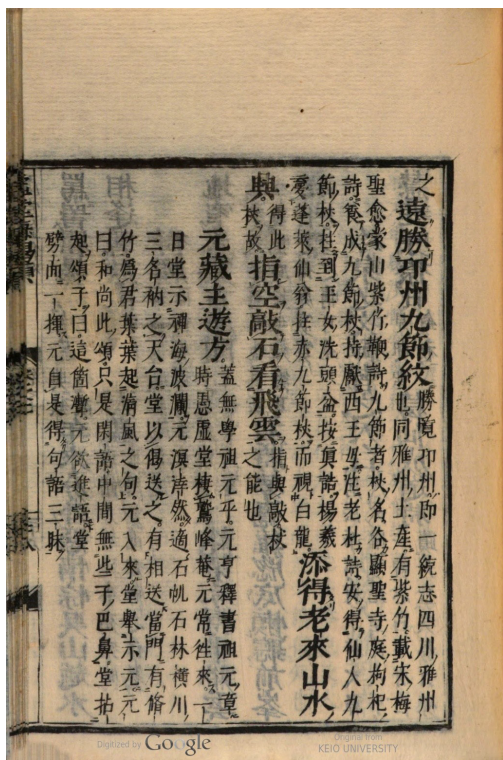 之遠勝卭州九節紋勝覽卭州即一統志四川雅州
也同雅州土產有紫竹載宋梅
聖愈蒙山紫竹鞭詩九節者杖名谷顯聖寺庭枸杞
詩養成九節杖持獻西王母注老杜詩安得仙人九
節杖拄到玉女洗頭盆按眞誥楊羲
夢蓬萊仙翁拄赤九節杖而視白龍添得老來山水
興得此杖故指空敲石看飛雲指與敲杖之能也
元藏主遊方蓋無學祖元乎元亨釋書祖元章
時愚虛堂棲鷲峰菴元常往來一
日堂示禪海波瀾元溟涬然適石帆石林橫川
三名衲之天台堂以偈送之有相送當門有脩
竹爲君葉葉起淸風之句元入來堂擧示元元
曰和尚此頌只是閑語中間無些子巴鼻堂拈
起頌子曰這箇聻元欲進語堂
劈面一揮元自是得句語三昧
Digitized by Google
Original from
KEIO UNIVERSITY